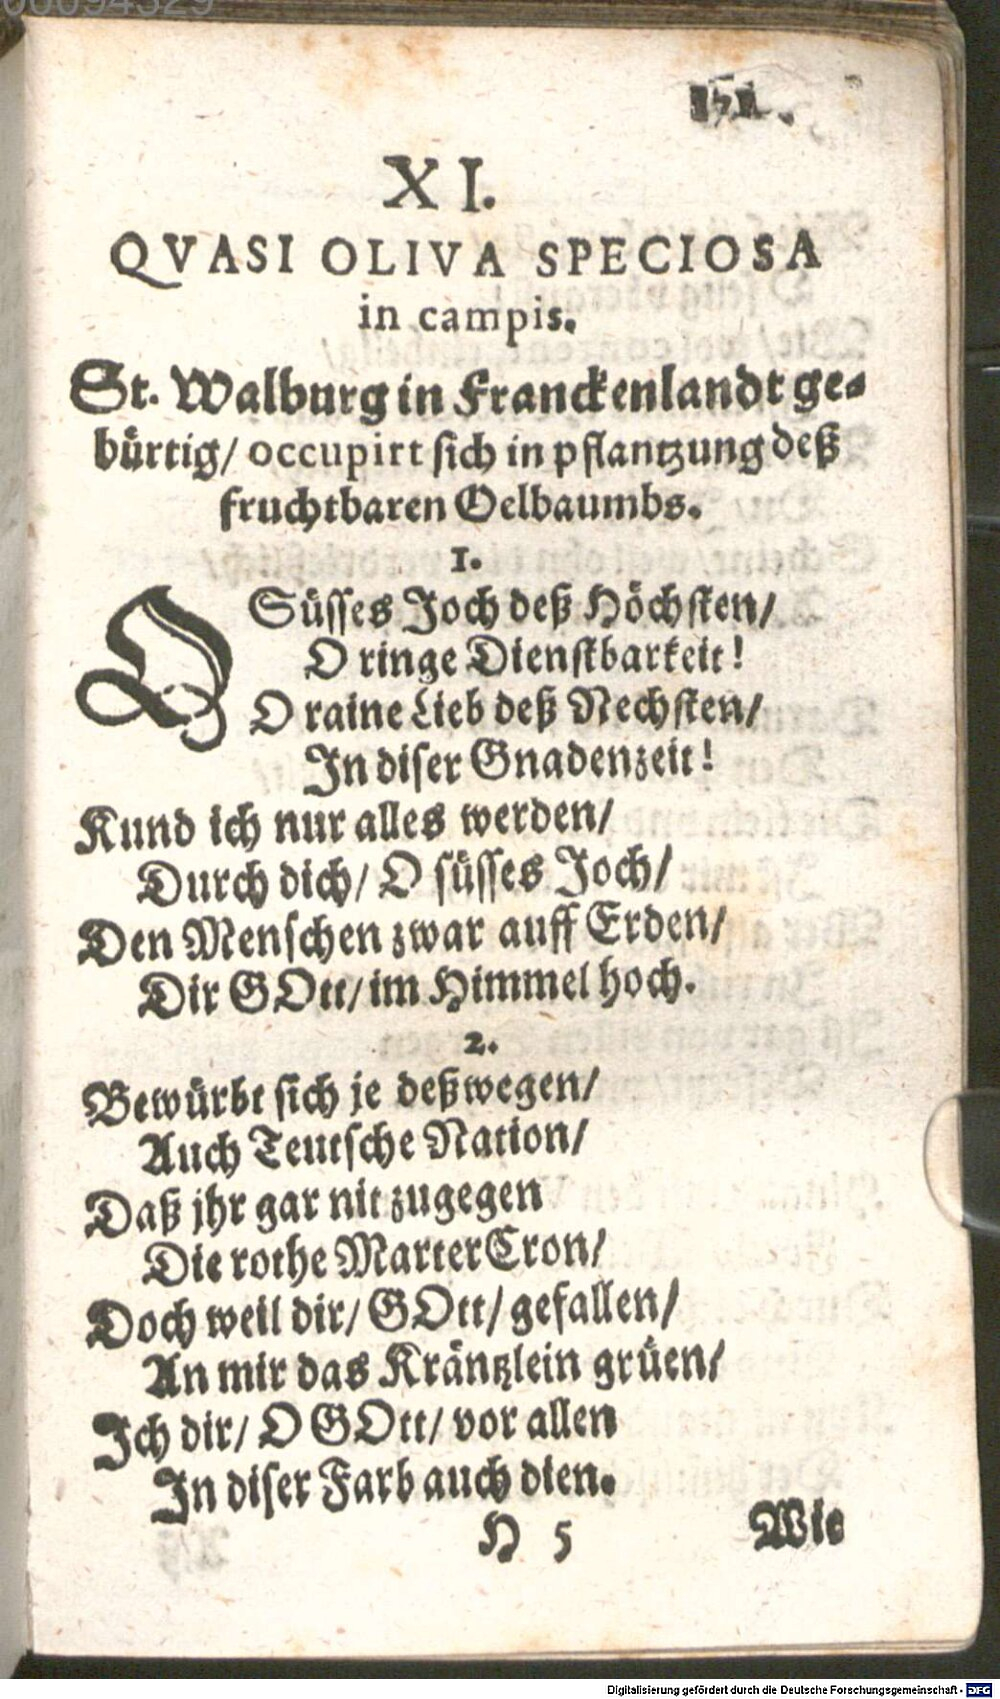 00094329
XI.
QVASI OLIVA SPECIOSA
in campis.
St. Walburg in Franckenlandt ge-
bürtig/ occupirt sich in pflantzung deß
fruchtbaren Oelbaumbs.
1.
O Süsses Joch deß Höchsten/
O ringe Dienstbarkeit!
O raine Lieb deß Nechsten/
In diser Gnadenzeit!
Kund ich nur alles werden/
Durch dich/ O süsses Joch/
Den Menschen zwar auff Erden/
Dir GOtt/ im Himmel hoch.
2.
Bewürbt sich je deßwegen/
Auch Teutsche Nation/
Daß jhr gar nit zugegen
Die rothe Marter Cron/
Doch weil dir/ GOtt/ gefallen/
An mir das Kräntzlein grüen/
Ich dir/ O GOtt/ vor allen
In diser Farb auch dien.
H 5 Wie
Digitalisierung gefördert durch die Deutsche Forschungsgemeinschaft - DFG